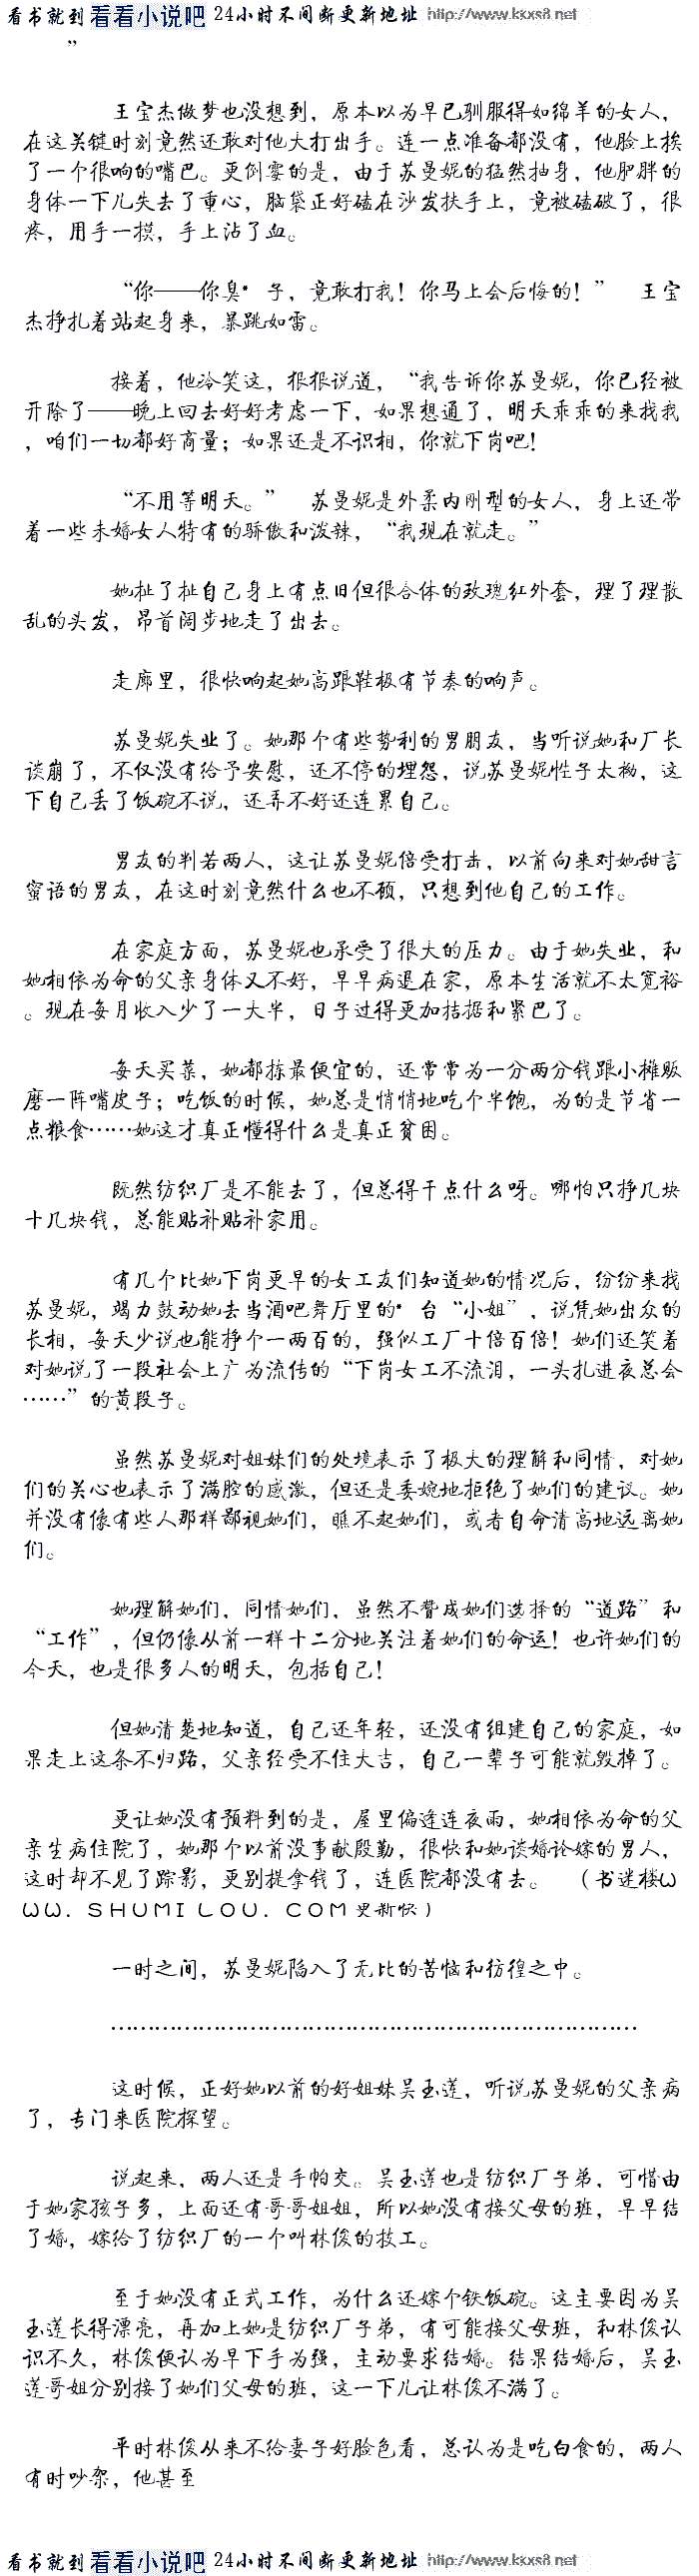 看书就到 看看小说吧 24小时不间断更新地址 http://www.kxxs8.net
”
王宝杰做梦也没想到，原本以为早已驯服得如绵羊的女人，
在这关键时刻竟然还敢对他大打出手。连一点准备都没有，他脸上挨
了一个很响的嘴巴。更倒霉的是，由于苏曼妮的猛然抽身，他肥胖的
身体一下儿失去了重心，脑袋正好磕在沙发扶手上，竟被磕破了，很
疼，用手一摸，手上沾了血。
“你——你臭* 子，竟敢打我！你马上会后悔的！” 王宝
杰挣扎着站起身来，暴跳如雷。
接着，他冷笑这，狠狠说道，“我告诉你苏曼妮，你已经被
开除了——晚上回去好好考虑一下，如果想通了，明天乖乖的来找我
，咱们一切都好商量；如果还是不识相，你就下岗吧！
“不用等明天。” 苏曼妮是外柔内刚型的女人，身上还带
着一些未婚女人特有的骄傲和泼辣，“我现在就走。”
她扯了扯自己身上有点旧但很合体的玫瑰红外套，理了理散
乱的头发，昂首阔步地走了出去。
走廊里，很快响起她高跟鞋极有节奏的响声。
苏曼妮失业了。她那个有些势利的男朋友，当听说她和厂长
谈崩了，不仅没有给予安慰，还不停的埋怨，说苏曼妮性子太拗，这
下自己丢了饭碗不说，还弄不好还连累自己。
男友的判若两人，这让苏曼妮倍受打击，以前向来对她甜言
蜜语的男友，在这时刻竟然什么也不顾，只想到他自己的工作。
在家庭方面，苏曼妮也承受了很大的压力。由于她失业，和
她相依为命的父亲身体又不好，早早病退在家，原本生活就不太宽裕
。现在每月收入少了一大半，日子过得更加拮据和紧巴了。
每天买菜，她都拣最便宜的，还常常为一分两分钱跟小摊贩
磨一阵嘴皮子；吃饭的时候，她总是悄悄地吃个半饱，为的是节省一
点粮食……她这才真正懂得什么是真正贫困。
既然纺织厂是不能去了，但总得干点什么呀。哪怕只挣几块
十几块钱，总能贴补贴补家用。
有几个比她下岗更早的女工友们知道她的情况后，纷纷来找
苏曼妮，竭力鼓动她去当酒吧舞厅里的* 台“小姐”，说凭她出众的
长相，每天少说也能挣个一两百的，强似工厂十倍百倍！她们还笑着
对她说了一段社会上广为流传的“下岗女工不流泪，一头扎进夜总会
……”的黄段子。
虽然苏曼妮对姐妹们的处境表示了极大的理解和同情，对她
们的关心也表示了满腔的感激，但还是委婉地拒绝了她们的建议。她
并没有像有些人那样鄙视她们，瞧不起她们，或者自命清高地远离她
们。
她理解她们，同情她们，虽然不赞成她们选择的“道路”和
“工作”，但仍像从前一样十二分地关注着她们的命运！也许她们的
今天，也是很多人的明天，包括自己！
但她清楚地知道，自己还年轻，还没有组建自己的家庭，如
果走上这条不归路，父亲经受不住大吉，自己一辈子可能就毁掉了。
更让她没有预料到的是，屋里偏逢连夜雨，她相依为命的父
亲生病住院了，她那个以前没事献殷勤，很快和她谈婚论嫁的男人，
这时却不见了踪影，更别提拿钱了，连医院都没有去。 （书迷楼W
WW．SHUMILOU．COM更新快）
一时之间，苏曼妮陷入了无比的苦恼和彷徨之中。
………………………………………………………………
这时候，正好她以前的好姐妹吴玉莲，听说苏曼妮的父亲病
了，专门来医院探望。
说起来，两人还是手帕交。吴玉莲也是纺织厂子弟，可惜由
于她家孩子多，上面还有哥哥姐姐，所以她没有接父母的班，早早结
了婚，嫁给了纺织厂的一个叫林俊的技工。
至于她没有正式工作，为什么还嫁个铁饭碗。这主要因为吴
玉莲长得漂亮，再加上她是纺织厂子弟，有可能接父母班，和林俊认
识不久，林俊便认为早下手为强，主动要求结婚。结果结婚后，吴玉
莲哥姐分别接了她们父母的班，这一下儿让林俊不满了。
平时林俊从来不给妻子好脸色看，总认为是吃白食的，两人
有时吵架，他甚至
看书就到 看看小说吧 24小时不间断更新地址 http://www.kxxs8.net